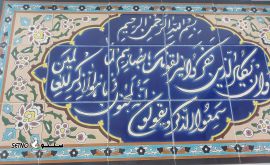 بسم الله الرحمن الرحیم
وان یکاد الذین کفروا لیزلقونک بابصارهم لما
سمعوا الذکر و یقولون انه لمجنون و ما هو الا ذکر للعالمین